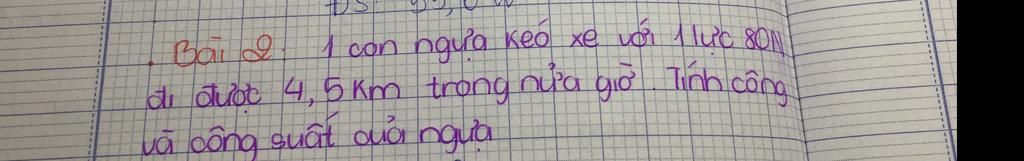 Bài 2. 1 con ngựa kéo xe với 1 lực 80N
đi được 4,5 km trong nửa giờ. Tính công
và công suất của ngựa